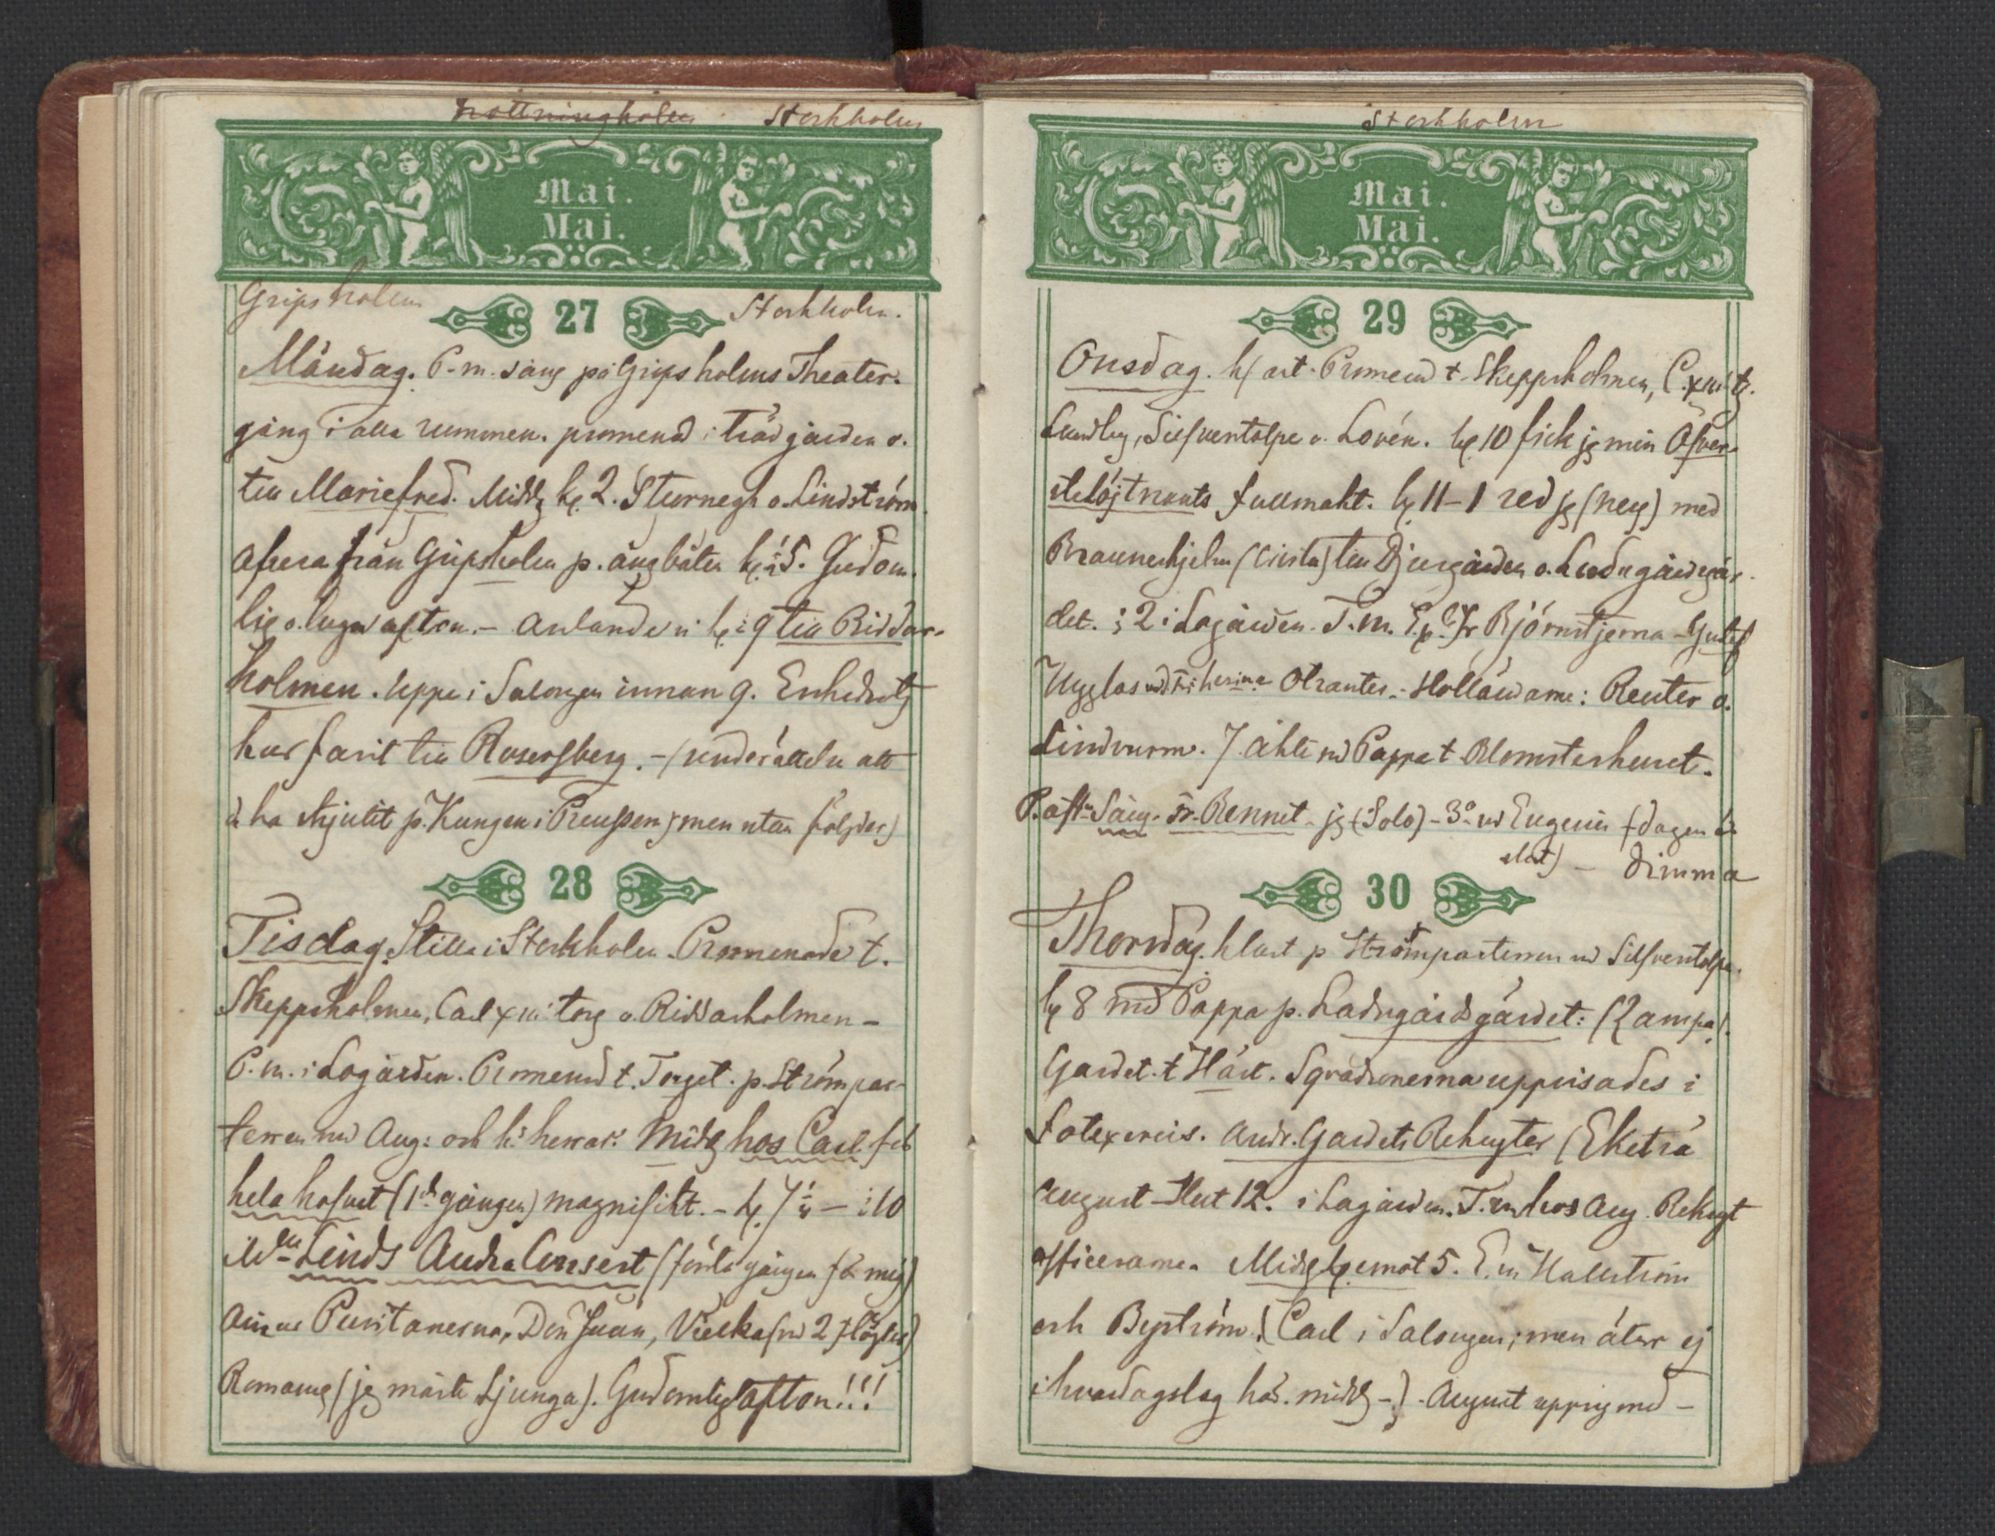 Drottningholm Stockholm
Mai.
Mai.
Gripsholm 27 Stockholm.
Måndag. E-m. sång på Gripsholms Theater.
gång i alla rummen. promenad i trädgården o.
till Mariefred. Midd. kl. 2. Sturnegk o. Lindström.
Afresa från Gripsholm p. ångbåten kl. 5. Gudom-
lig o. lugn afton. – anlände vi kl. 9 till Riddar-
holmen. Uppe i Salongen innan 9. Enkedrotg
har farit till Rosersberg. – (underrättelse att
d. ha skjutit p. Kungen i Preussen, men utan följder)
28
Tisdag. Stilla i Stockholm. Promenade t.
Skeppsholmen, Carl XIII: torg o. Riddarholmen –
E. m. i Logården. Promenad t. Torget. p. Strömpar-
terren md Aug: och h: herrar: Midg hos Carl f.
hela hofvet (1sta gången) magnifikt. – kl. 7 – 10
Mlle Linds Andra Consert (första gången för mig)
Puritanerna, Don Juan, Vielka (md 2 flöjter)
Romance (jg måste sjunga). Gudomlig afton!!!
Stockholm
Mai.
Mai.
29
Onsdag. Promenad t. Skeppsholmen, C. XIII: tg.
Lundbg, Silfverstolpe o. Lovén. kl. 10 fick jg min Öfver-
stelöjtnants fullmakt. kl. 11–1 red jg (Ney) med
Braunerhjelm till Djurgården o. Ladugårdsgär-
det. 2 i Logården. F. m. Björnstjerna – Gustaf
Ugglas Otranter. – Holländarne: Reuter o.
Lindvurm. 7 åkte md Pappa t. Blomsterhuset.
P. aftn Sång. Fr. Rennet – jg (Solo) – 3o. md Eugenie f dagen är
slut) – dimma
30
Thorsdag. klart p. Strömparterren md Silfverstolpe.
kl 8 med Pappa p. Ladugårdsgärdet: (Zampa).
Gardet. t Häst. Sqvadronerna uppvisades i
fotexercis. Andr. Gardets Rekryter (Eketrä
August – slut 12. i Logården. F. m hos Aug. Rekryt
officerarne. Midg kl. emot 5. E. m Hallström
och Byström. (Carl i Salongen; men äter ej
i hvardagslag hos. midg –) . August uppsyn md –